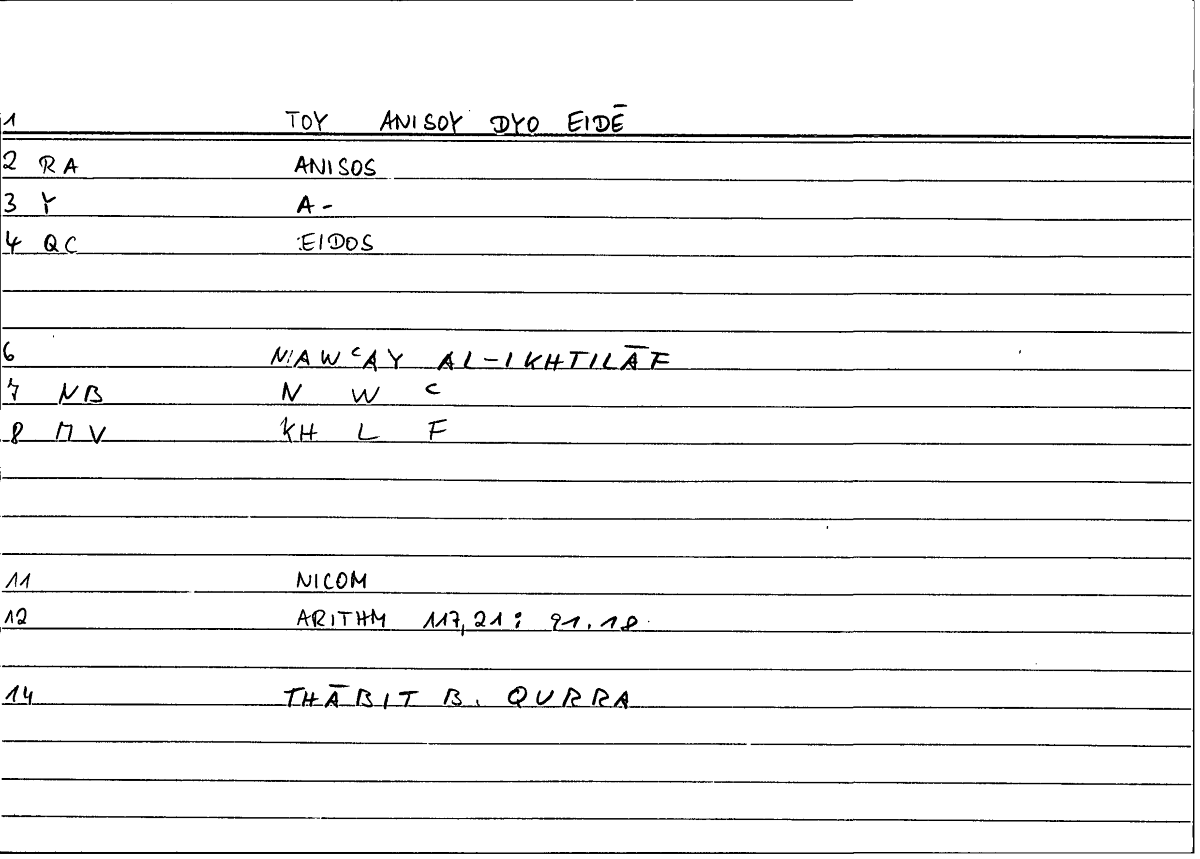 1 TOY ANISOY DYO EIDĒ
2 RA ANISOS
3 Y A-
4 QC EIDOS
6 NAWᶜAY AL-IKHTILĀF
7 NB N W ᶜ
8 MV KH L F
11 NICOM
12 ARITHM 117,21: 91.18
14 THĀBIT B. QURRA